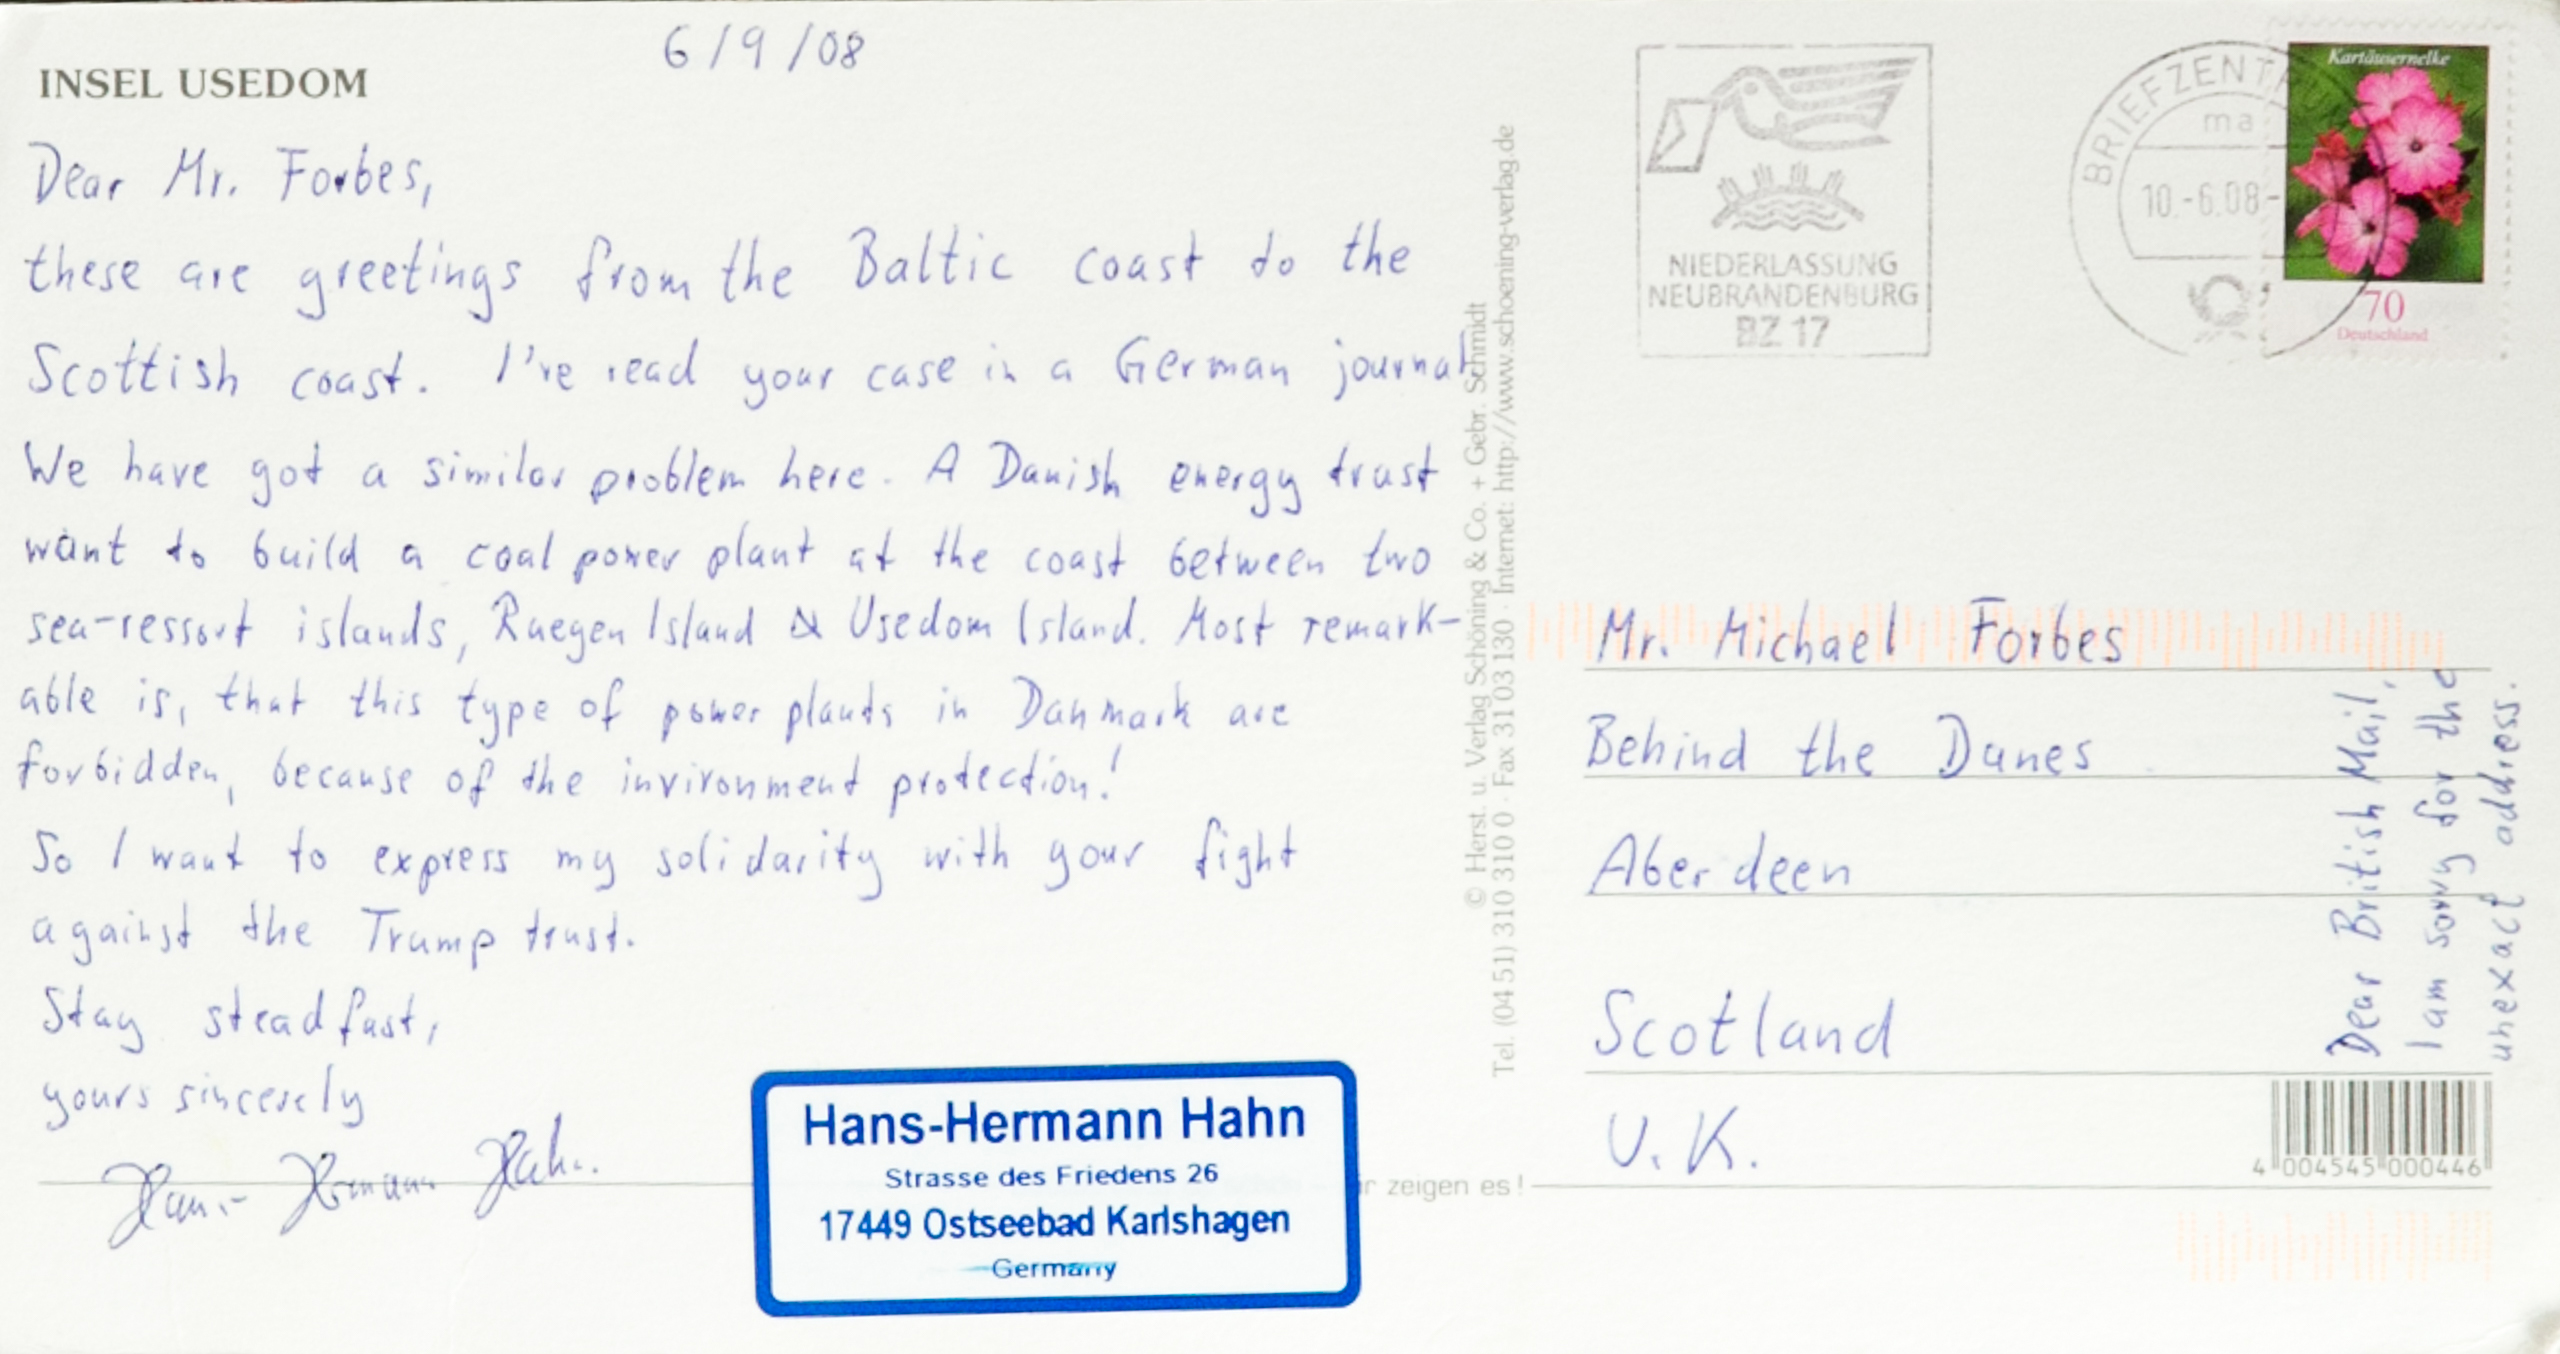 6/9/08
INSEL USEDOM
Dear Mr. Forbes,
these are greetings from the Baltic coast to the
Scottish coast. I've read your case in a German journal
We have got a similar problem here. A Danish energy trust
want to build a coal power plant at the coast between two
sea-ressort islands, Ruegen Island & Usedom Island. Most remark-
able is, that this type of power plants in Danmark are
forbidden, because of the invironment protection!
So I want to express my solidarity with your fight
against the Trump trust.
Stay steadfast,
yours sincerely
Hans-Hermann Hahn.
Hans-Hermann Hahn
Strasse des Friedens 26
17449 Ostseebad Karlshagen
Germany
zeigen es!
© Herst. u. Verlag Schöning & Co. + Gebr. Schmidt
Tel. (04 51) 310 310 0 · Fax 31 03 130 · Internet: http://www.schoening-verlag.de
NIEDERLASSUNG
NEUBRANDENBURG
BZ 17
BRIEFZENTRUM
ma
10.-6.08-
Kartäusernelke
70
Deutschland
Mr. Michael Forbes
Behind the Dunes
Aberdeen
Scotland
U.K.
Dear British Mail,
I am sorry for the
unexact address.
4 004545 000446